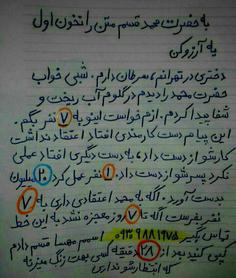 به حضرت محمد قسم متن را تاخون اول
یه آرزو کن
دختری در تهرانم، سرطان دارم. شبی خواب
حضرت محمد را دیدم در گلوم آب ریخت و
شفا پیدا کردم. ازم خواست اینو به ۷ نفر بگم.
این پیام دست کارمندی افتاد اعتقاد نداشت
کارشو از دست داد، به دست دیگری افتاد عملی
نکرد پسرشو از دست داد. ۱ نفر عمل کرد ۲۰ میلیون
بدست آورد. اگه به محمد اعتقادی داری به ۷
نفر بفرست اگه تا ۷ روز معجزه نشد به این خط
تماس بگیر ۹۸۸۱۹۷۵ اسمم مهسا قسم دادم
کمی بعد از ۲۸ دقیقه کسی بهت زنگ میزنه
که انتظارشو نداری